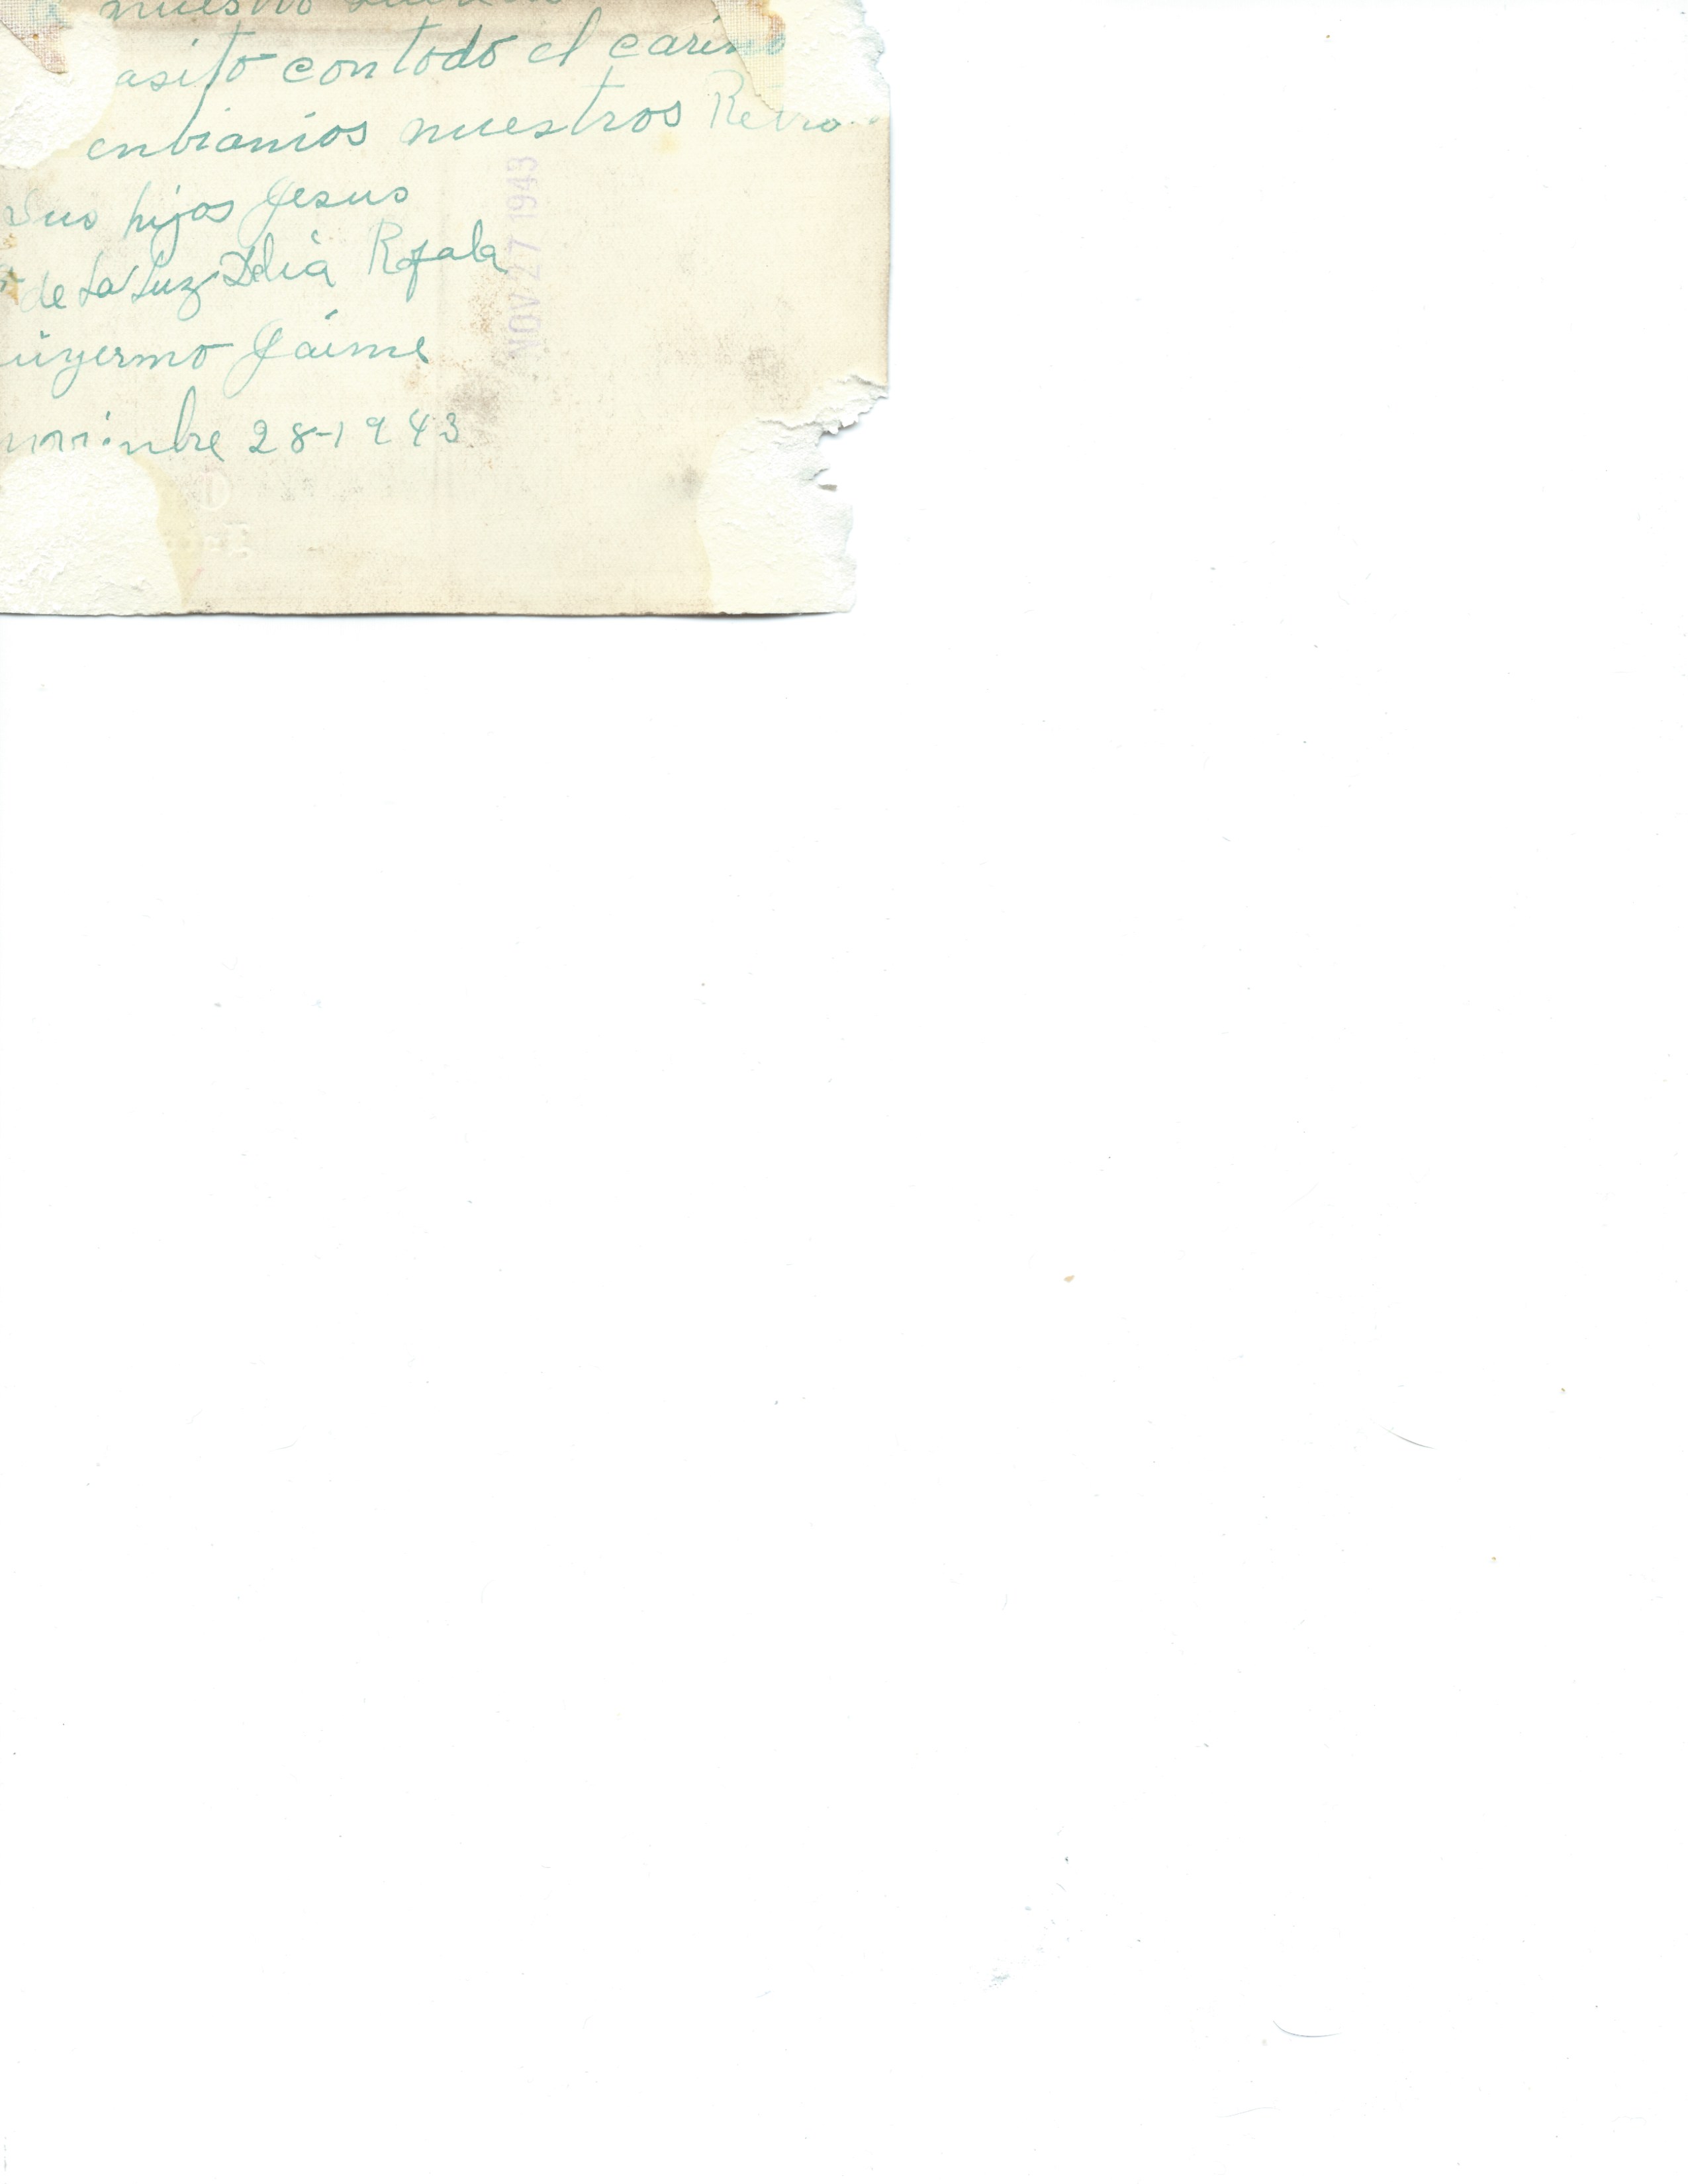 nuestro
asito con todo el cariño
enbiamos nuestros Retra
Sus hijos Jesus
de La Luz Delia Rafala
uiyermo Jaime
novienbre 28-1943
NOV 27 1943